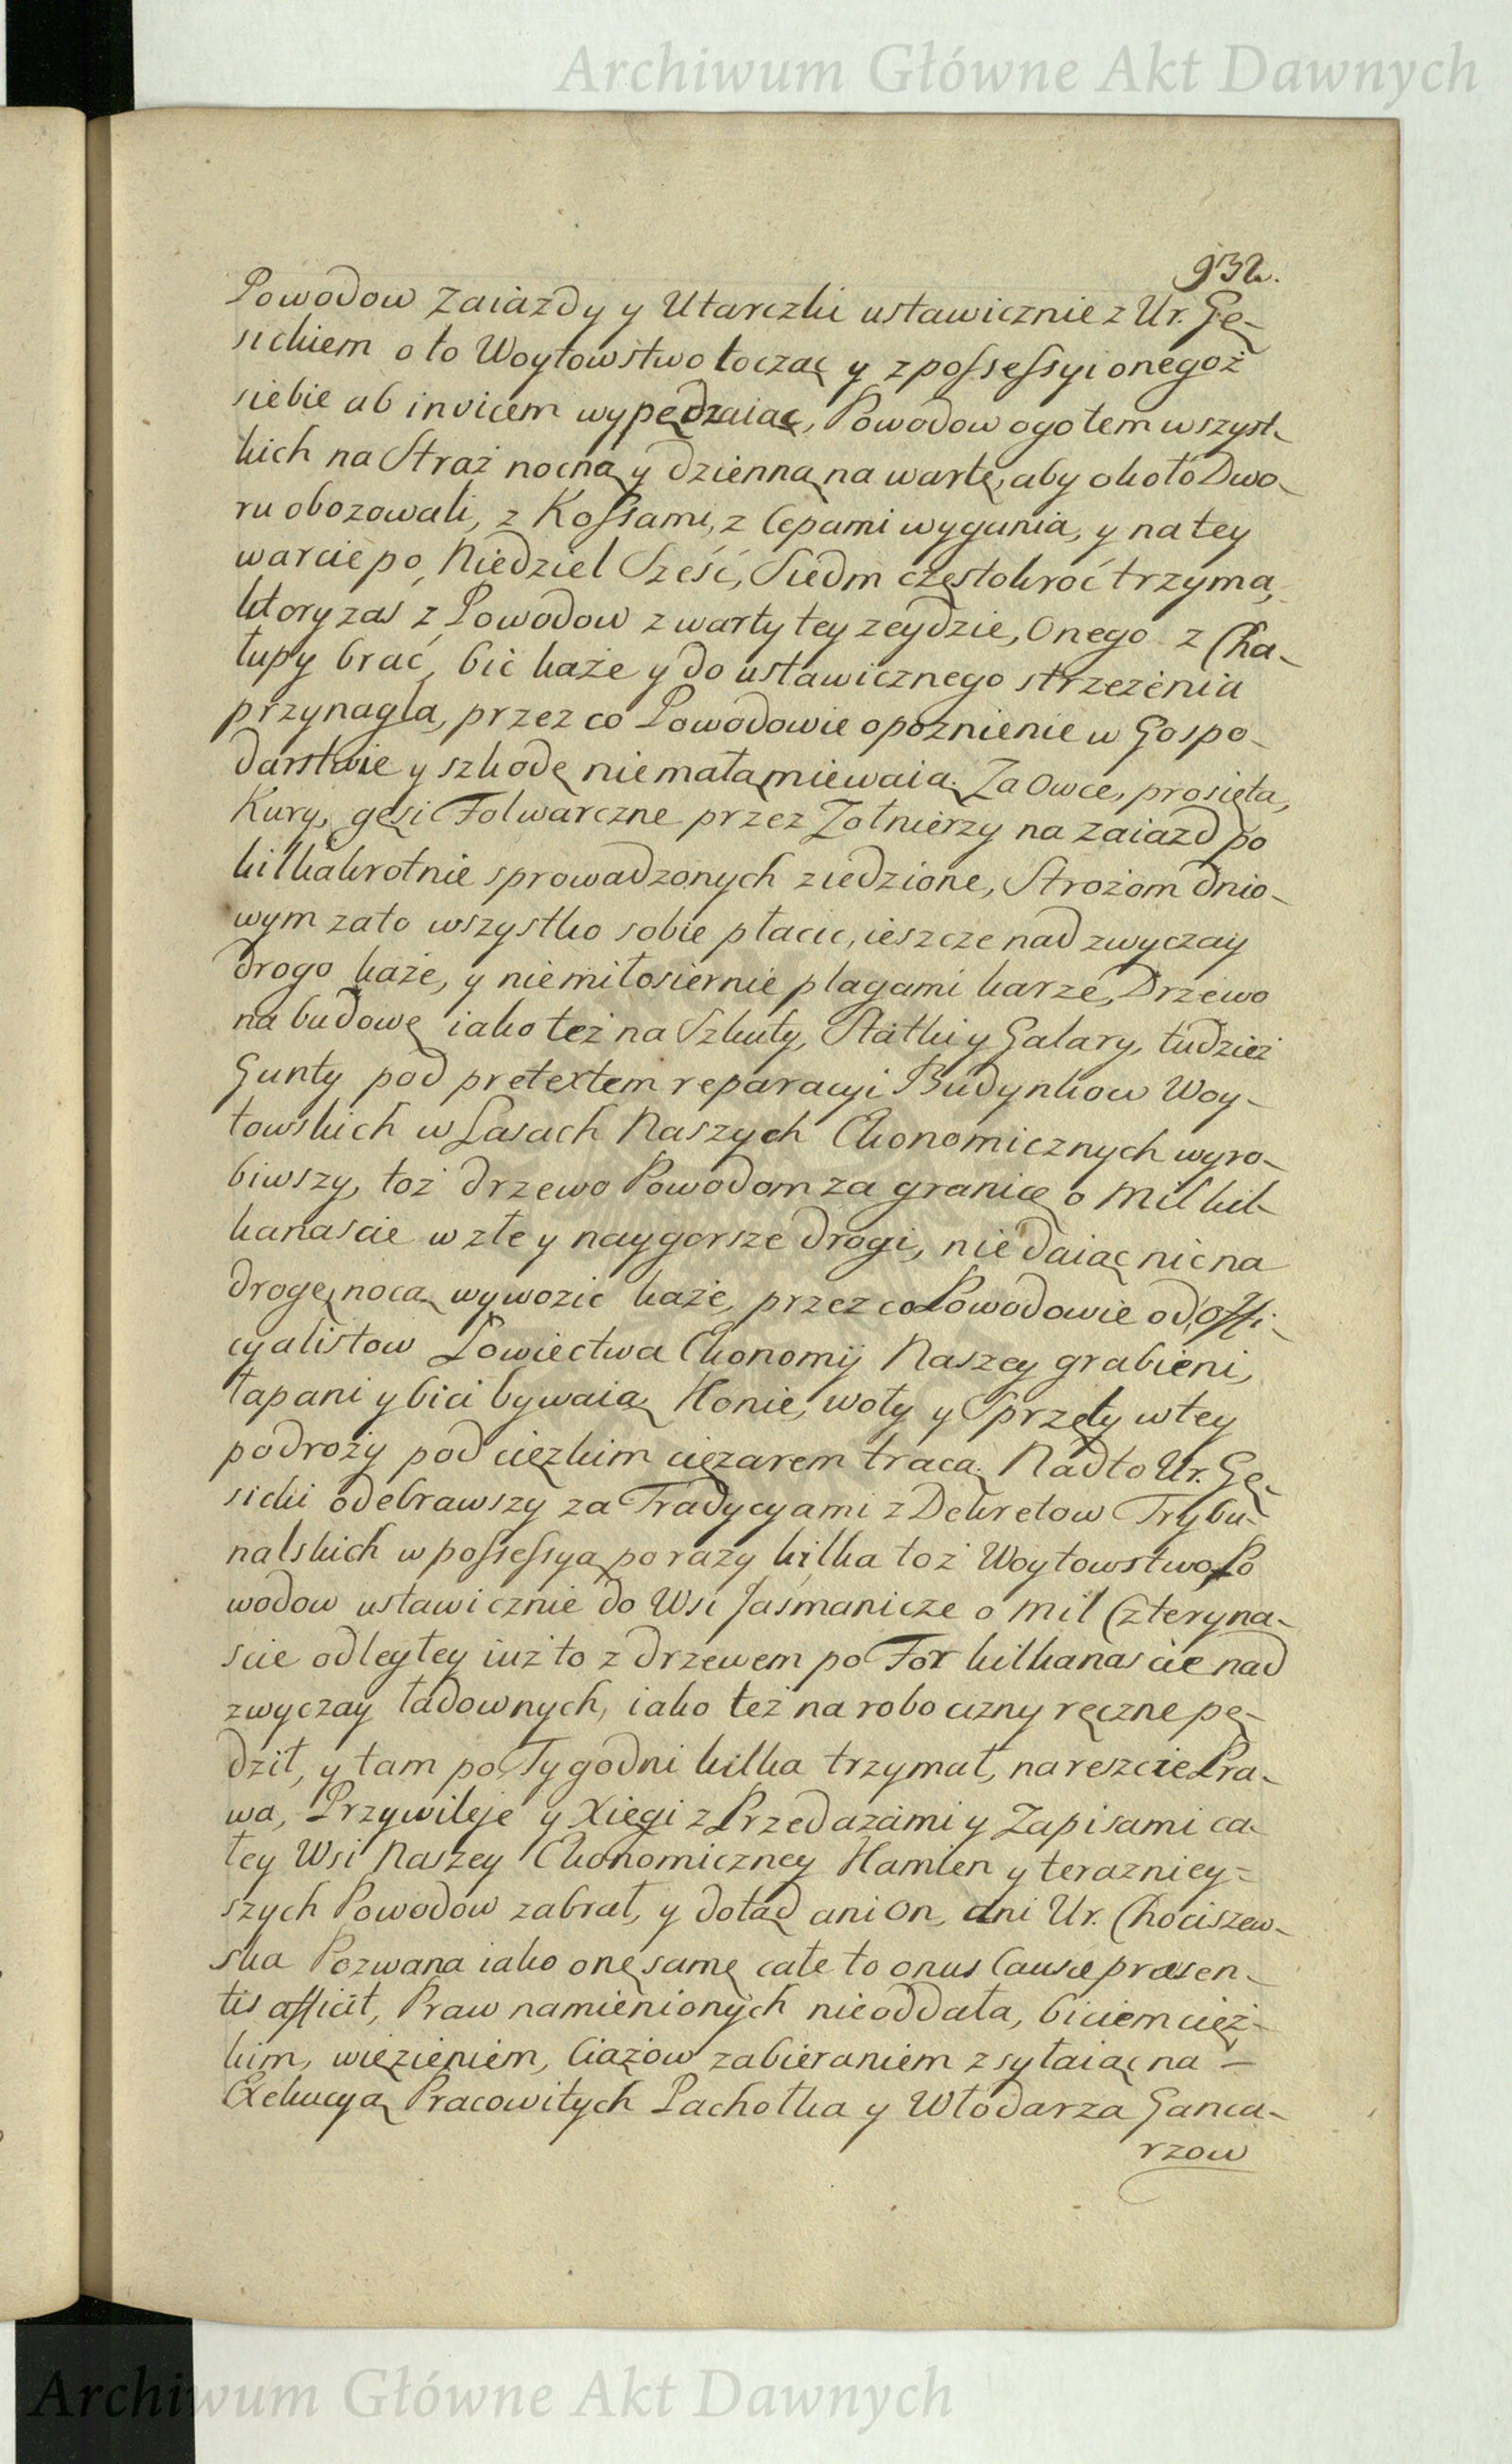 Archiwum Główne Akt Dawnych
932.
Powodow Zaiazdy y Utarczki ustawicznie z Ur. Gę-
sickiem o to Woytowstwo tocząc y z possessyi onegoż
siebie ab invicem wypędzaiąc, Powodow ogołem wszyst-
kich na Straż nocną y dzienną na wartę, aby około Dwo-
ru obozowali, z Kossami, z Cepami wygania, y na tey
warcie po Niedziel Sześć, Siedm częstokroć trzyma,
ktory zaś z Powodow z warty tey zeydzie, Onego z Cha-
łupy brać, bić każe y do ustawicznego strzeżenia
przynagla, przez co Powodowie opoznienie w Gospo-
darstwie y szkodę niemałą miewaią. Za Owce, prosięta,
Kury, gęsi Folwarczne przez Żołnierzy na zaiazd po
kilkakrotnie sprowadzonych ziedzione, Strożom dnio-
wym zato wszystko sobie płacic, ieszcze nad zwyczay
drogo każe, y niemiłosiernie plagami karze, Drzewo
na budowę iako też na Szkuty, Statki y Galary, tudzież
Gunty pod pretextem reparacyi Budynkow Woy-
towskich w Lasach Naszych Ekonomicznych wyro-
biwszy, toż drzewo Powodom za granicę o Mil kil-
kanascie w złe y naygorsze drogi, nie daiąc nic na
drogę, nocą wywozic każe, przez co Powodowie od Offi-
cyalistow Łowiectwa Ekonomij Naszey grabieni,
łapani y bici bywaią, Konie, woły y Sprzęty w tey
podroży pod cięzkim cięzarem tracą. Nadto Ur. Gę-
sicki odebrawszy za Tradycyami z Dekretow Trybu-
nalskich w possessyą po razy kilka toż Woytowstwo, Po
wodow ustawicznie do Wsi Jaśmanicze o mil Czteryna-
scie odległey iuż to z drzewem po For kilkanascie nad
zwyczay ładownych, iako też na robocizny ręczne pę-
dził, y tam po Tygodni kilka trzymał, nareszcie Pra-
wa, Przywileje y Xięgi z Przedażami y Zapisami ca-
łey Wsi Naszey Ekonomiczney Hamlen y terazniey-
szych Powodow zabrał, y dotąd ani On, ani Ur. Chociszew-
ska Pozwana iako onę samę całe to onus Causæ præsen-
tis afficit, Praw namienionych nieoddała, biciem cięż-
kim, więzieniem, Ciążow zabieraniem zsyłaiąc na -
Exekucyą Pracowitych Pachołka y Włodarza Ganca-
rzow
Archiwum Główne Akt Dawnych